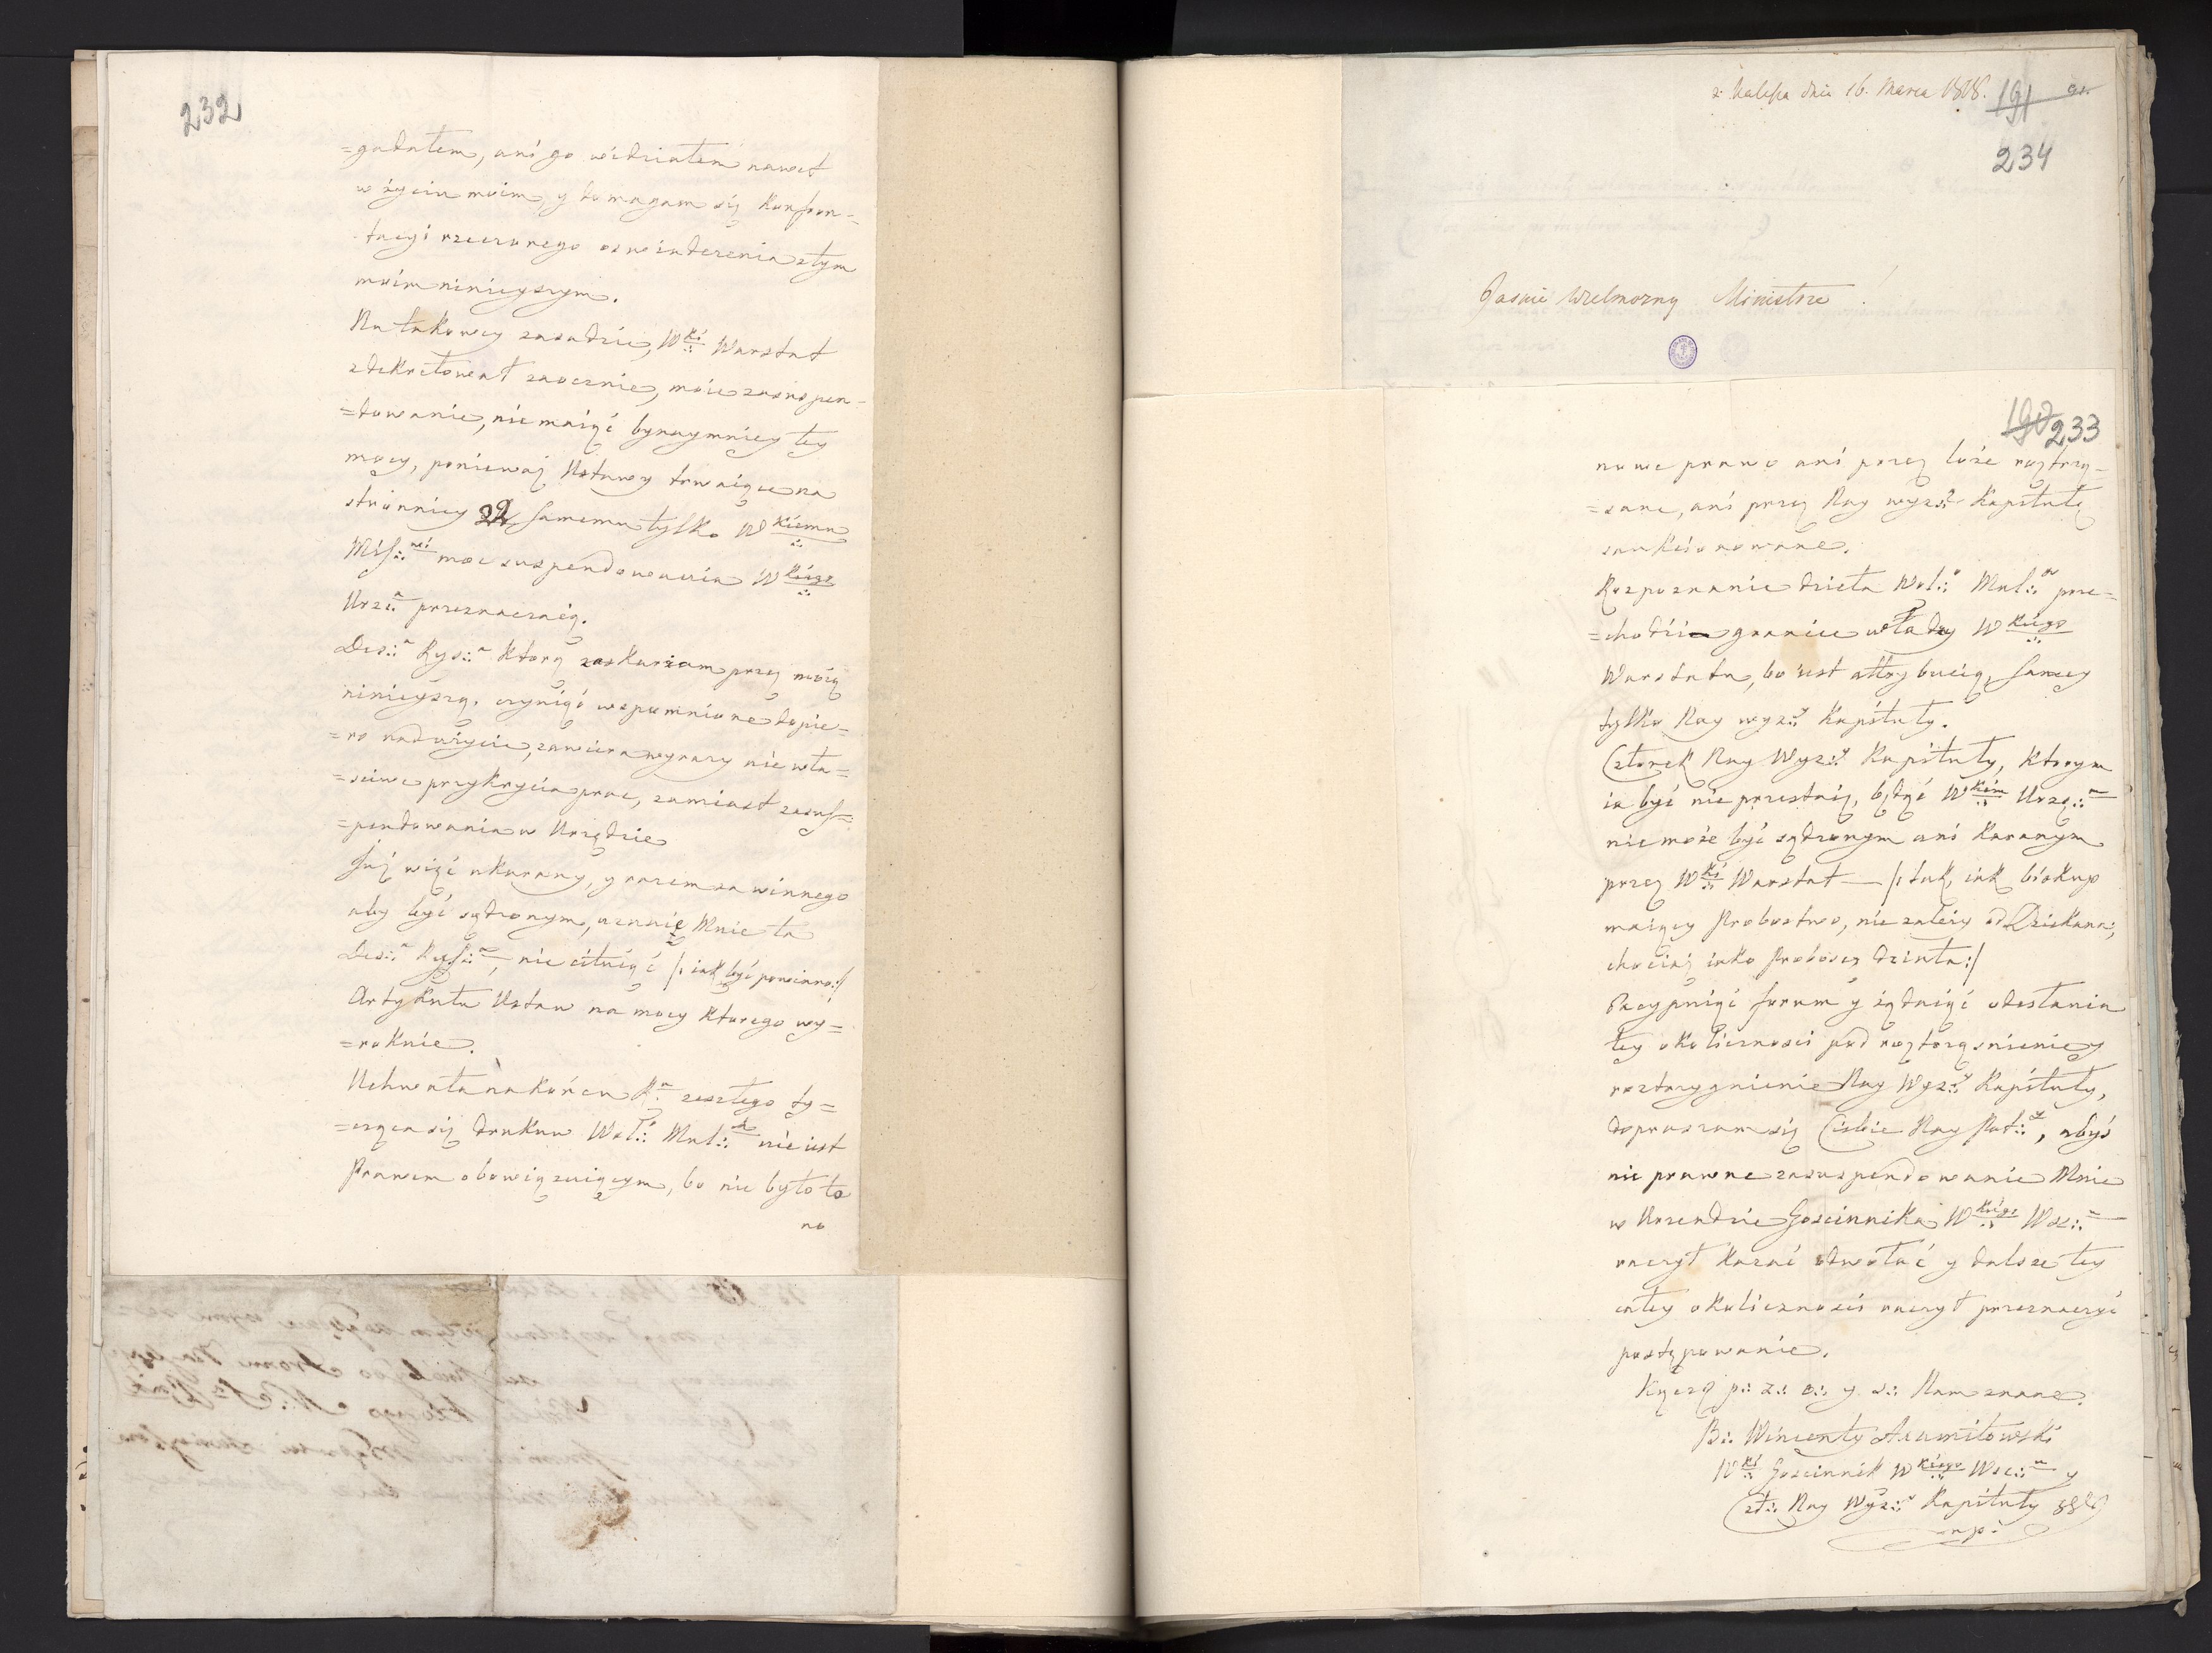 232
=gadałem, ani go widziałem nawet
w życiu moim, y domagam się Konfron=
tacyi rzeczonego oswiadczenia z tym
moim ninieyszym.
Na takowey zasadzie, Wki Warstat
zdekretował zaocznie, moie zasuspen=
=dowanie, nie maiąć bynaymniey tey
mocy, poniewaj Ustawy trwaiące na
stronnicy 22 samemu tylko Wkiemu
Mis∴ moc suspendowania Wkiego
Urz∴a przeznaczaią.
Des∴a Rys∴a Którą zaskarżam przez moią
ninieyszą, czyniąć wspomnione dopie=
=ro nadużycie, zawiera wyrazy nie wła=
=sciwe przykrycia prac, zamiast zasus=
=pendowania w Urzędzie
Juź więć ukarany, y razem za winnego
aby być sądzonym, uznaie Mnie ta
Des∴a Rys∴a, nie cituiąć /: iak być powinno:/
Artykułu Ustaw na mocy Ktorego wy=
=roknie.
Uchwała na Końcu R∴ zeszłego ty=
=cząca się druków Wol∴ Mul∴ nie iest
Prawem obowiązuiącym, bo nie było to
no
z Kalisza dnia 16. Marca 1818.
191
234
Jasnie Wielmozny Ministrze!
190 233
nowe prawo ani przez loże roztrzą=
=sane, ani przez Nay wyz∴ą Kapitułę
sankcionowane.
Rozpoznanie dzieła Wol∴ Mul∴ prze=
=chodzi granice władzy Wkiego
Warstatu, bo iest attrybucią, samey
tylko Nay wyz∴y Kapituły.
Członek Nay Wyz∴y Kapituły, Ktorym
ia być nie przestaię, będąć Wkim Urzę∴m
nie może być sądzonym ani Karanym
przez Wki Warstat — /: tak, iak biskup
maiący Probostwo, nie zależy od Dziekana,
chociaż iako Proboszcz działa :/
Excypuiąć forum y żądaiąć odesłania
tey okoliczności pod roztrząsnienie y
roztrzygnienie Nay Wyz∴y Kapituły,
dopraszam się Ciebie Nay Pot∴y, abyś
nie prawne zasuspendowanie Mnie
w Urzendzie Gościnnika Wkiego Wsc∴
raczył Kazać odwołać y dalsze tey
całey okoliczności raczył przeznaczyć
postępowanie.
Kączę p∴ z∴ o∴ y s∴ Nam znane.
B∴ Wincenty Axamitowski
Wki Gościnnik Wkiego Wsc∴ y
Czł∴ Nay Wyz∴y Kapituły
mp.